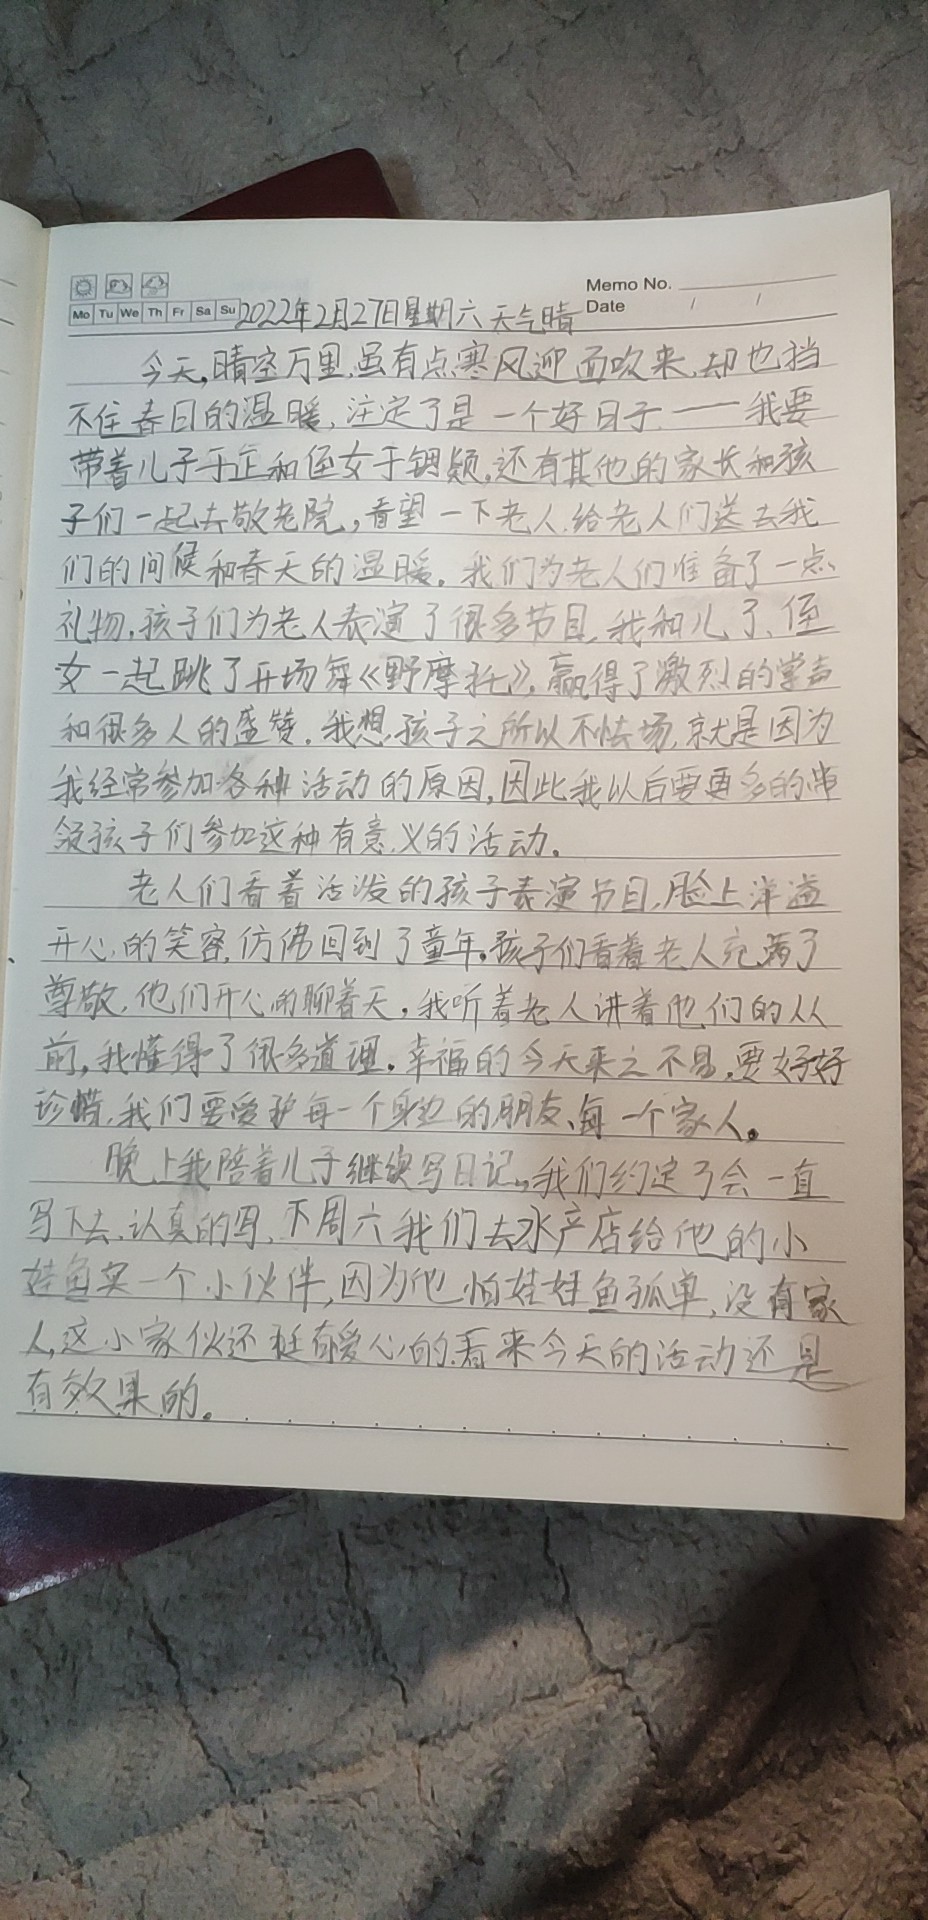 Memo No.
Mo Tu We Th Fr Sa Su 2022年2月27日星期六 天气晴 Date / /
今天,晴空万里,虽有点寒风迎面吹来,却也挡
不住春日的温暖,注定了是一个好日子——我要
带着儿子于正和侄女于钥颖,还有其他的家长和孩
子们一起去敬老院,看望一下老人,给老人们送去我
们的问候和春天的温暖。我们为老人们准备了一点
礼物,孩子们为老人表演了很多节目,我和儿子、侄
女一起跳了开场舞《野摩托》,赢得了激烈的掌声
和很多人的盛赞。我想,孩子之所以不怯场,就是因为
我经常参加各种活动的原因,因此我以后要更多的带
领孩子们参加这种有意义的活动。
老人们看着活泼的孩子表演节目,脸上洋溢
开心的笑容,仿佛回到了童年。孩子们看着老人充满了
尊敬,他们开心的聊着天,我听着老人讲着他们的从
前,我懂得了很多道理。幸福的今天来之不易,要好好
珍惜,我们要爱护每一个身边的朋友、每一个家人。
晚上我陪着儿子继续写日记,我们约定了会一直
写下去,认真的写,下周六我们去水产店给他的小
娃鱼买一个小伙伴,因为他怕娃娃鱼孤单,没有家
人,这小家伙还挺有爱心的,看来今天的活动还是
有效果的。